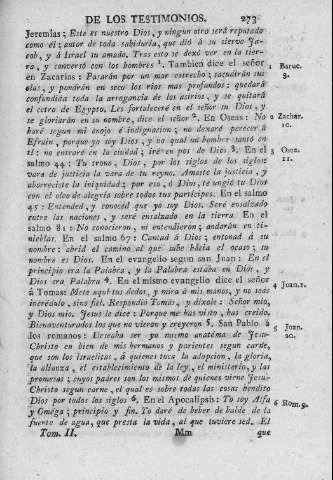 DE LOS TESTIMONIOS. 273
Jeremías; Este es nuestro Dios, y ningun otro será reputado
como él; autor de toda sabiduría, que dió á su siervo Ja-
cob, y á Israel su amado. Tras esto se dexó ver en la tier-
ra, y conversó con los hombres 1. Tambien dice el señor
1 Baruc. 3.
en Zacarías: Pasarán por un mar estrecho; sacudirán sus
olas, y pondrán en seco los rios mas profundos; quedará
confundida toda la arrogancia de los asirios, y se quitará
el cetro de Egypto. Les fortaleceré en el señor su Dios, y
se gloriarán en su nombre, dice el señor 2. En Oseas: No
2 Zachar. 10.
haré segun mi enojo é indignacion; no dexaré perecer á
Efrain, porque yo soy Dios, y no qual un hombre santo en
tí: no entraré en la ciudad; iré en pos de Dios 3. En el
3 Osee. 11.
salmo 44: Tu trono, Dios, por los siglos de los siglos:
vara de justicia la vara de tu reyno. Amaste la justicia, y
aborreciste la iniquidad; por eso, ó Dios, te ungió tu Dios
con el oleo de alegría sobre todos tus partícipes. En el salmo
45: Entended, y conoced que yo soy Dios. Seré ensalzado
entre las naciones, y seré ensalzado en la tierra. En el
salmo 81: No conocieron, ni entendieron; andarán en ti-
nieblas. En el salmo 67: Cantad á Dios, entonad á su
nombre: abrid el camino al que sube hácia el ocaso; su
nombre es Dios. En el evangelio segun san Juan: En el
principio era la Palabra, y la Palabra estaba en Dios, y
Dios era Palabra 4. En el mismo evangelio dice el señor
4 Joan. 1.
á Tomas: Mete aquí tus dedos, y mira á mis manos, y no seas
incrédulo, sino fiel. Respondió Tomas, y díxole: Señor mio,
y Dios mio. Jesus le dice: Porque me has visto, has creido.
Bienaventurados los que no vieron y creyeron 5. San Pablo á
5 Joan. 20.
los romanos: Deseaba ser yo mismo anatéma de Jesu-
Christo en bien de mis hermanos y parientes segun carde,
que son los israelitas, á quienes toca la adopcion, la gloria,
la alianza, el establecimiento de la ley, el ministerio, y las
promesas; cuyos padres son los mismos de quienes viene Jesu-
Christo segun carne, el qual es sobre todas las cosas bendito
Dios por todos los siglos 6. En el Apocalipsis: Yo soy Alfa
6 Rom. 9.
y Oméga; principio y fin. Yo daré de beber de balde de la
fuente de agua, que presta la vida, al que tuviere sed. El
Tom. II. Mm que